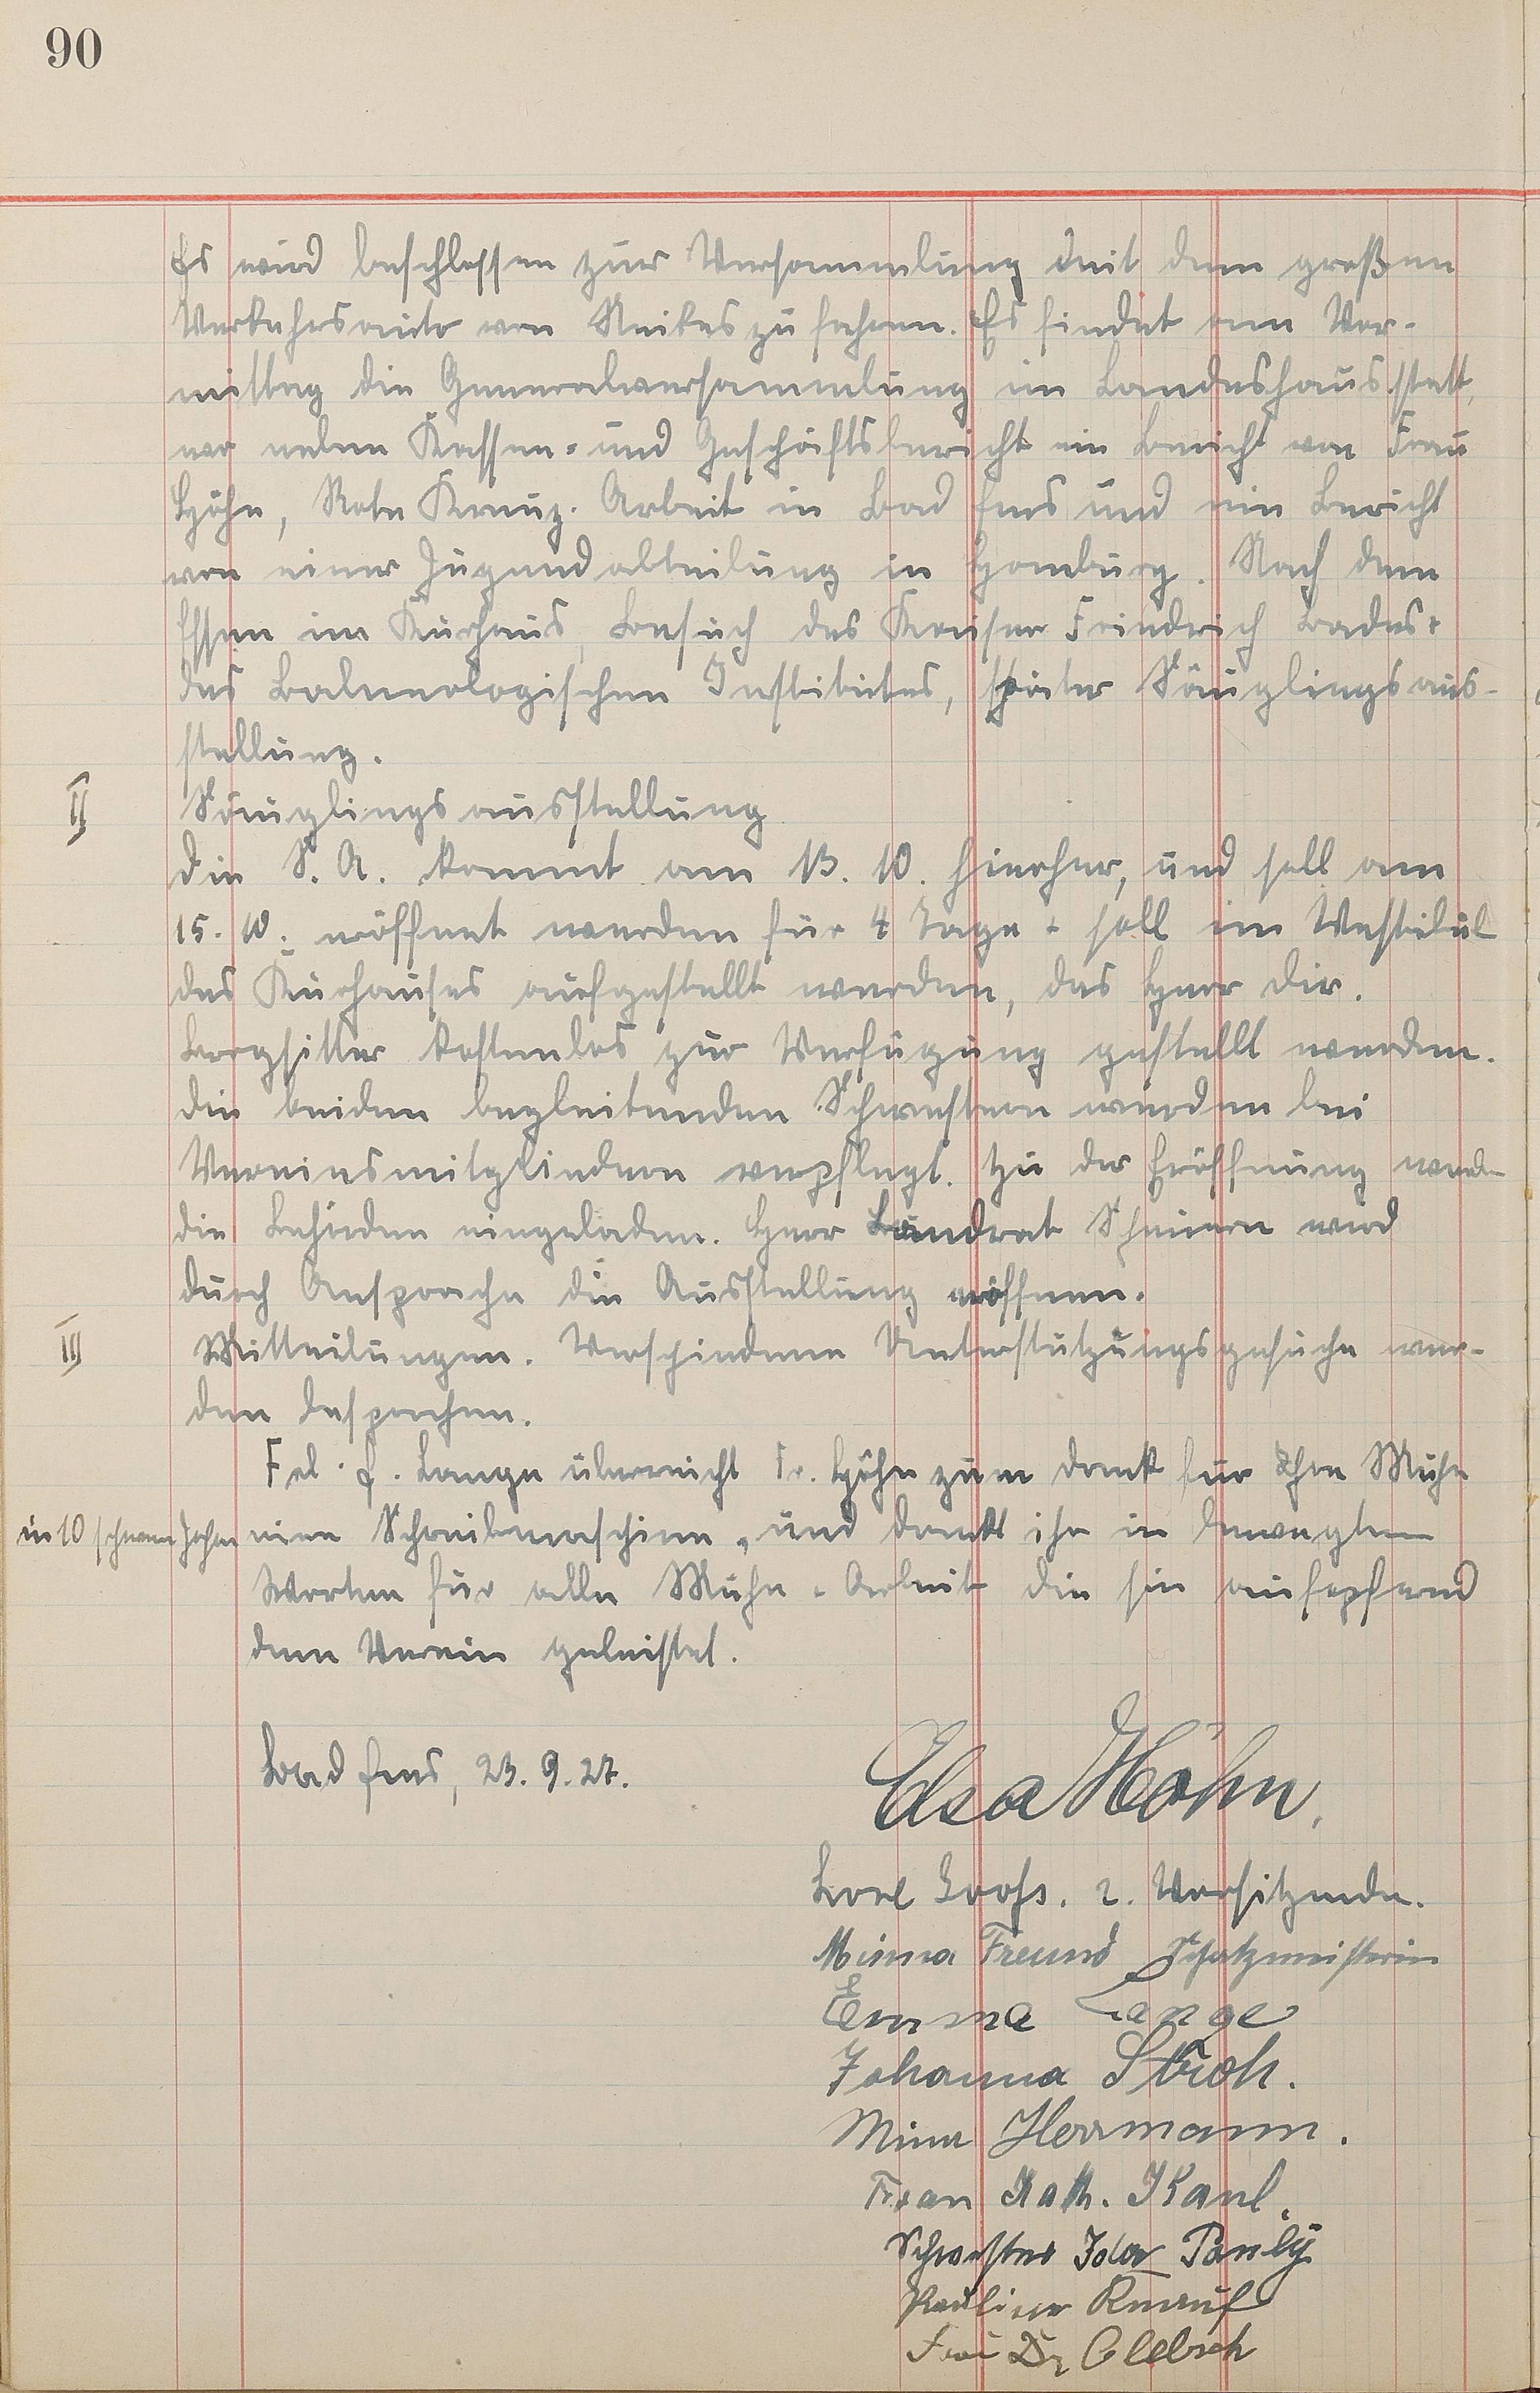 90
Es wird beschlossen zur Versammlung mit dem großen
Verkehrsauto von Neikes zu fahren. Es findet am Vor-
mittag die Generalversammlung im Landeshaus statt,
wo neben Kassen- und Geschäftsbericht ein Bericht von Frau
Höhn, Rote Kreuz-Arbeit in Bad Ems und ein Bericht
von einer Jugendabteilung in Homburg. Nach dem
Essen im Kurhaus, Besuch des Kaiser Friedrich Bades +
des Balneologischen Institutes, später Säuglingsaus-
stellung.
II Säuglingsausstellung
Die S. A. kommt am 13. 10. hierher, und soll am
15. 10. eröffnet werden für 4 Tage + soll im Vestibül
des Kurhauses aufgestellt werden, das Herr Dir.
kostenlos zur Verfügung gestellt werden.
Die beiden begleitenden Schwestern wurden bei
Vereinsmitgliedern verpflegt. Zu der Eröffnung werden
die Behörden eingeladen. Herr Landrat Scheuern wird
durch Ansprache die Ausstellung eröffnen.
III Mitteilungen. Verschiedene Unterstützungsgesuche wer-
den besprochen.
Frl. E. Lange überreicht Fr. Höhn zum Dank für Ihre Mühe
in 10 schweren Jahren eine Schreibmaschine, und dankt ihr in bewegten
Worten für alle Mühe + Arbeit die sie aufopfernd
dem Verein geleistet.
Bad Ems, 23. 9. 27.
Elsa Höhn,
Loofs. 2. Vorsitzende.
Minna Freund Schatzmeisterin
Emma Lange
Johanna Stroh.
Mina Herrmann.
Frau Kath. Kaul.
Schwester Ida Pauly
Pauline Knauf
Frau Dr Clebsch